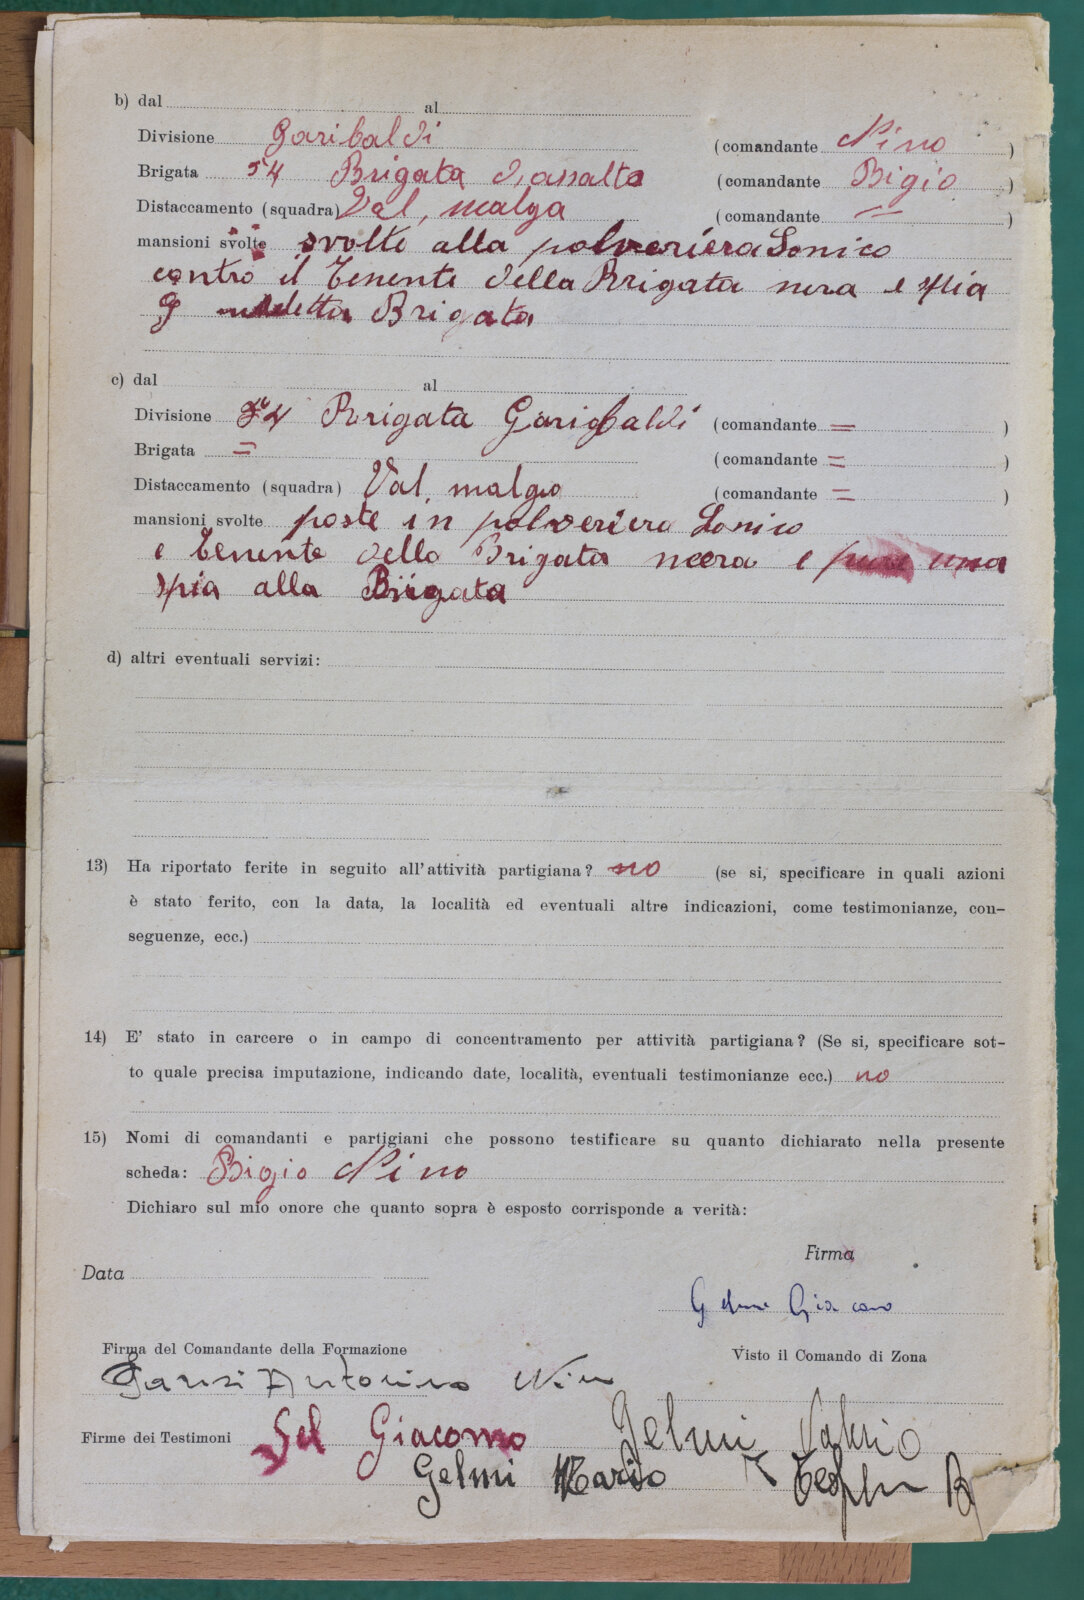 b) dal al
Divisione Garibaldi (comandante Nino )
Brigata 54 Brigata d'assalto (comandante Bigio )
Distaccamento (squadra) Val, malga (comandante = )
mansioni svolte svolte alla polveriera Sonico
contro il Tenente della Brigata nera e spia
Brigata
c) dal al
Divisione 54 Brigata Garibaldi (comandante = )
Brigata = (comandante = )
Distaccamento (squadra) Val, malga (comandante = )
mansioni svolte poste in polveriera Sonico
e Tenente della Brigata neera e una
spia alla Brigata
d) altri eventuali servizi:
13) Ha riportato ferite in seguito all'attività partigiana? no (se si, specificare in quali azioni
è stato ferito, con la data, la località ed eventuali altre indicazioni, come testimonianze, con-
seguenze, ecc.)
14) E' stato in carcere o in campo di concentramento per attività partigiana? (Se si, specificare sot-
to quale precisa imputazione, indicando date, località, eventuali testimonianze ecc.) no
15) Nomi di comandanti e partigiani che possono testificare su quanto dichiarato nella presente
scheda: Bigio Nino
Dichiaro sul mio onore che quanto sopra è esposto corrisponde a verità:
Firma
Data
Gelmi Giacomo
Firma del Comandante della Formazione
Visto il Comando di Zona
Antonino Nino
Firme dei Testimoni Gel Giacomo Gelmi
Gelmi Mario